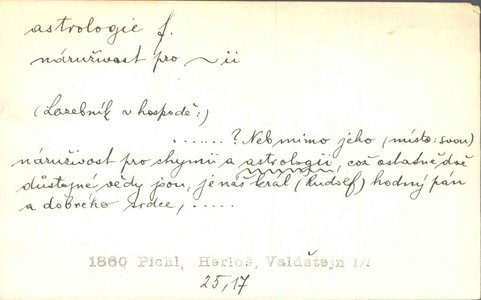 astrologie f.
náruživost pro ~ii
(Lazebník v hospodě:)
......? Neb mimo jeho (místo: svou)
náruživost pro chymii a astrologii, což ostatně dvě
důstojné vědy jsou, je náš král (Rudolf) hodný pán
a dobrého srdce, .....
1860 Pichl, Herloš, Valdštejn I/1
25,17